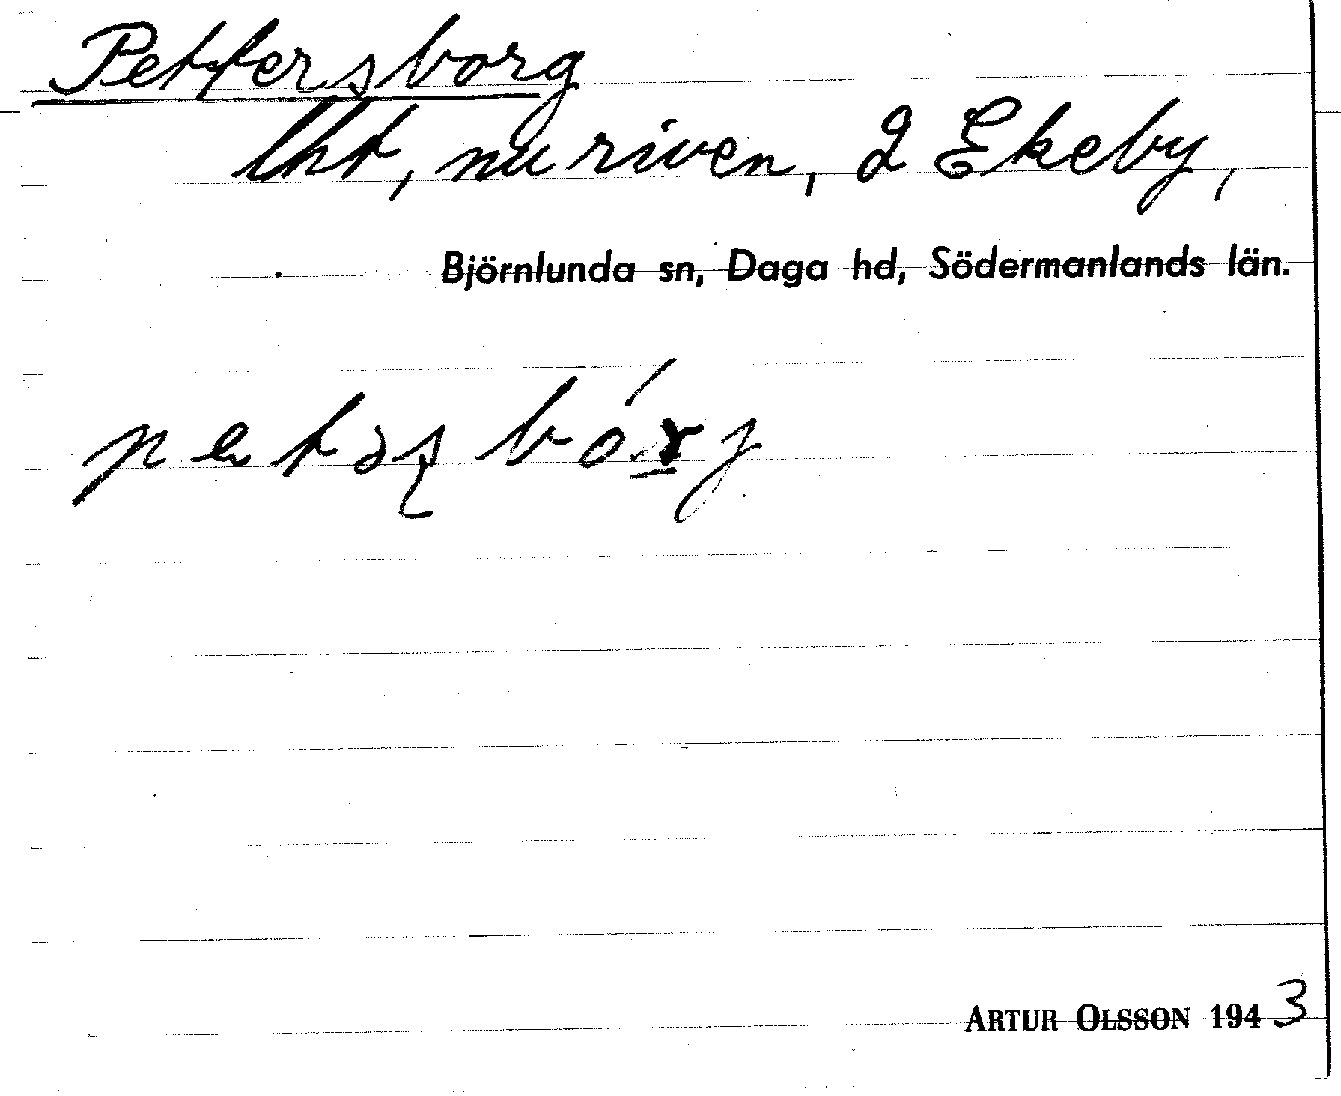 Pettersborg
lht, nu riven, 2 Ekeby,
Björnlunda sn, Daga hd, Södermanlands län.
ARTUR OLSSON 1943